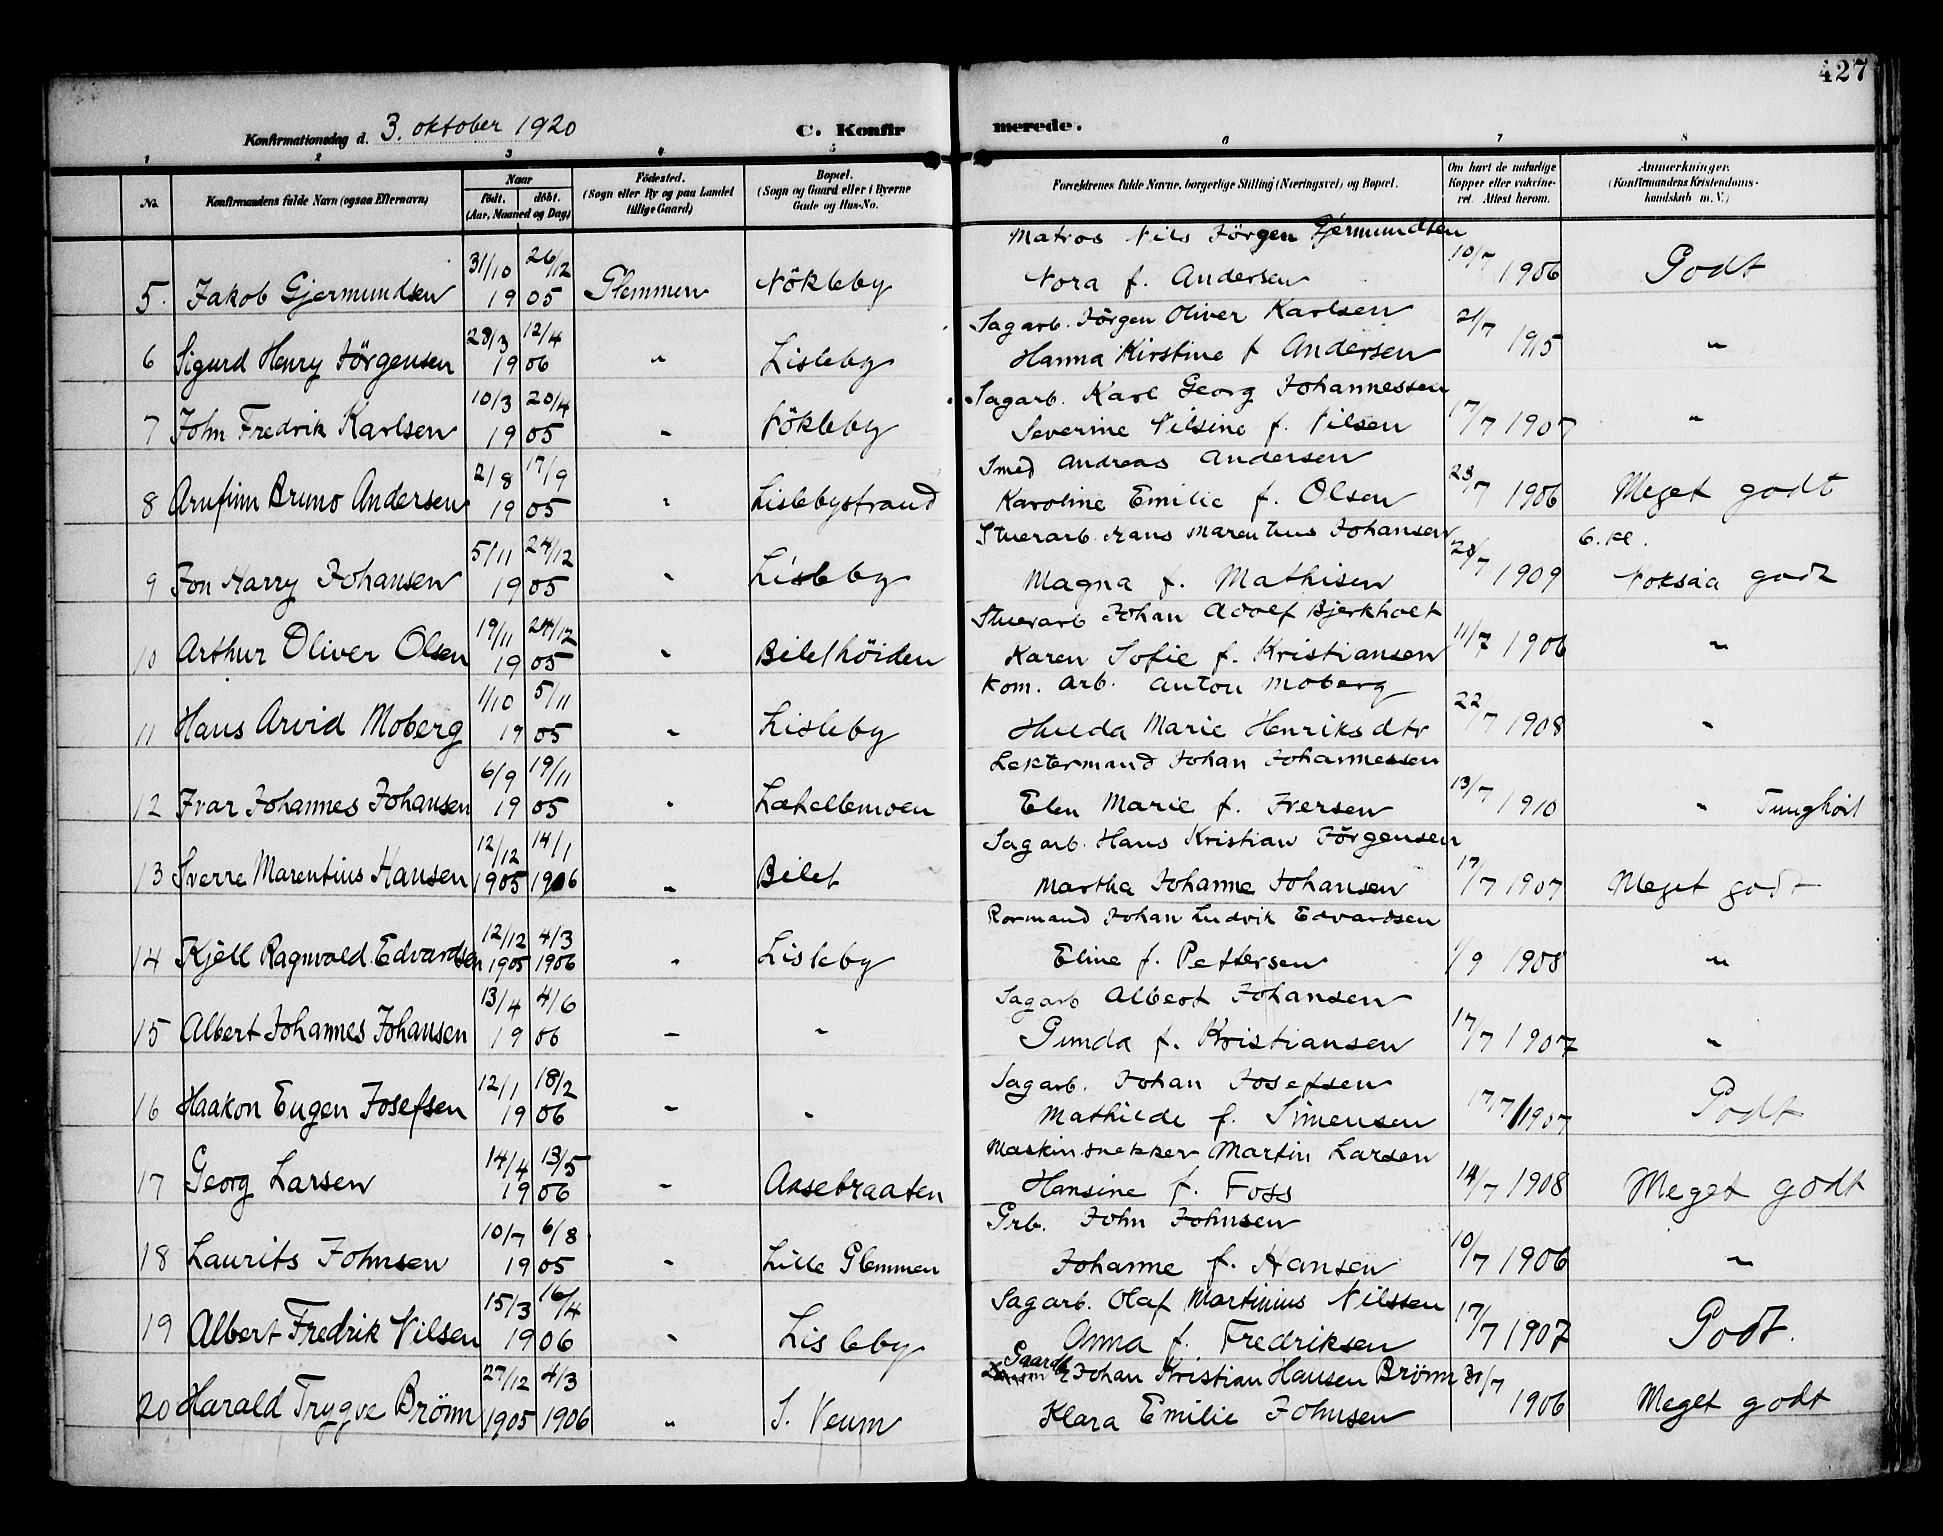 427
Konfirmationsdag d. 3. oktober 1920 C. Konfir merede.
1 2 3 4 5 6 7 8
No. Konfirmandens fulde Navn (ogsaa Efternavn) Naar født. døbt. (Aar, Maaned og Dag) Fødested. (Sogn eller By og paa Landet tillige Gaard) Bopæl. (Sogn og Gaard eller i Byerne Gade og Hus-No. Forældrenes fulde Navne, borgerlige Stilling (Næringsvei) og Bopæl. Om havt de naturlige Kopper eller vaksineret. Attest herom. Anmerkninger. (Konfirmandens Kristendomskundskab m. V.)
31/10 26/12 Matros Nils Jörgen Gjermundsen 10/7
5. Jakob Gjermundsen 19 05 Glemmen Nökleby Nora f. Andersen 1906 Godt
28/3 12/4 Sagarb. Jörgen Oliver Karlsen 21/7
6 Sigurd Henry Jörgensen 19 06 " Lisleby Hanna Kirstine f Andersen 1915 "
10/3 20/4 Sagarb. Karl Georg Johannessen
7 John Fredrik Karlsen 19 05 " Nökleby Severine Nilsine f. Nilsen 17/7 1907 "
2/8 17/9 Smed Andreas Andersen
8 Arnfinn Bruno Andersen 19 05 " Lislebystrand Karoline Emilie f. Olsen 23/7 1906 Meget godt
5/11 24/12 Stuerarb. Hans Marentius Johansen 6. kl.
9 Jon Harry Johansen 19 05 " Lisleby Magna f. Mathisen 28/7 1909 Noksaa godt
19/11 24/12 Stuerarb Johan Adolf Bjerkholt
10 Arthur Oliver Olsen 19 05 " Bilethöiden Karen Sofie f. Kristiansen 11/7 1906 "
1/10 5/11 Kom. Arb. Anton Moberg
11 Hans Arvid Moberg 19 05 " Lisleby Hulda Marie Henriksdtr 22/7 1908 "
6/9 19/11 Lektermand Johan Johannessen
12 Ivar Johannes Johansen 19 05 " Lakellemoen Elen Marie f. Iversen 13/7 1910 " Tunghört
12/12 14/1 Sagarb. Hans Kristian Jörgensen
13 Sverre Marentius Hansen 1905 1906 " Bilet Martha Johanne Johansen 17/7 1907 Meget godt
12/12 4/3 Rormand Johan Ludvik Edvardsen
14 Kjell Ragnvald Edvardsen 1905 1906 " Lisleby Eline f. Pettersen 1/9 1908 "
13/4 4/6 Sagarb Albert Johansen
15 Albert Johannes Johansen 19 06 " " Gunda f. Kristiansen 17/7 1907 "
12/1 18/2 Sagarb. Johan Josefsen
16 Haakon Eugen Josefsen 19 06 " " Mathilde f. Simensen 17/7 1907 Godt
14/4 13/5 Maskinsnekker Martin Larsen
17 Georg Larsen 19 06 " Aasebraaten Hansine f. Foss 14/7 1908 Meget godt
10/7 6/8 Grb. John Johnsen
18 Laurits Johnsen 19 05 " Lille Glemmen Johanne f. Hansen 10/7 1906 "
15/3 16/4 Sagarb. Olaf Martinius Nilssen
19 Albert Fredrik Nilsen 19 06 " Lisleby Anna f. Fredriksen 17/7 1907 Godt.
27/12 4/3 Gaardb. Johan Kristian Hansen Brönn 31/7
20 Harald Trygve Brönn 1905 1906 " S. Veum Klara Emilie Johnsen 1906 Meget godt